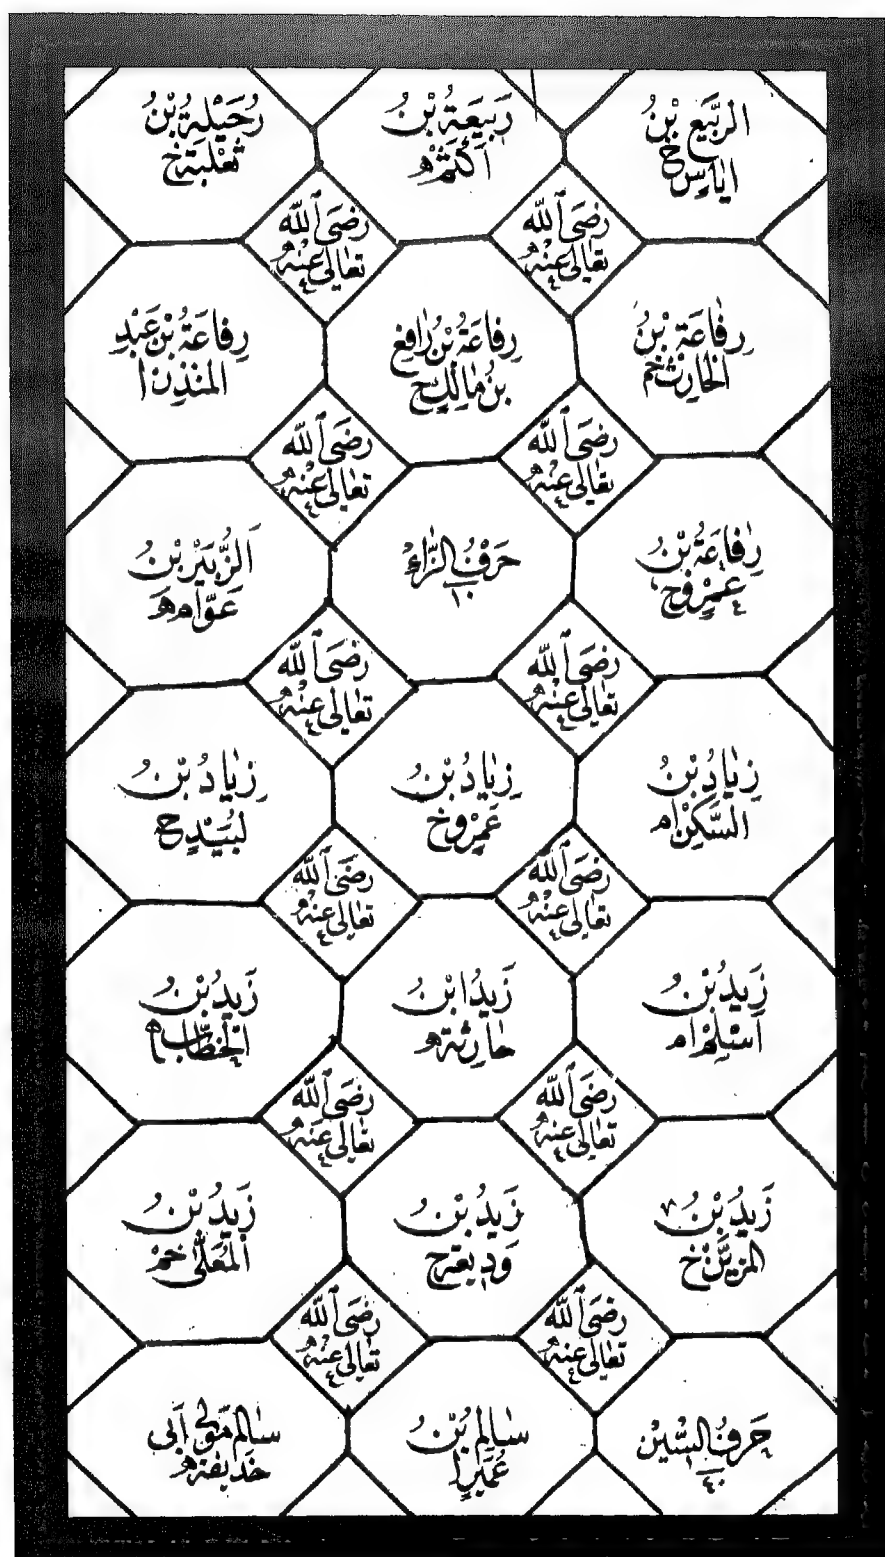 الرَّبِيعُ بْنُ
اِيَاسٍ خ
رَبِيعَةُ بْنُ
اَكْثَمْ ه
رُحَيْلَةُ بْنُ
ثَعْلَبَةَ خ
رَضِيَ اللّٰهُ
تَعَالٰى عَنْهُ
رَضِيَ اللّٰهُ
تَعَالٰى عَنْهُ
رِفَاعَةُ بْنُ
الْحَارِثِ خم
رِفَاعَةُ بْنُ رَافِعِ
بْنِ مَالِكٍ ح
رِفَاعَةُ بْنُ عَبْدِ
الْمُنْذِرِ ا
رَضِيَ اللّٰهُ
تَعَالٰى عَنْهُ
رَضِيَ اللّٰهُ
تَعَالٰى عَنْهُ
رِفَاعَةُ بْنُ
عَمْرٍو خ
حَرْفُ الزَّاءِ
١٠
اَلزُّبَيْرُ بْنُ
عَوَّامْ ه
رَضِيَ اللّٰهُ
تَعَالٰى عَنْهُ
رَضِيَ اللّٰهُ
تَعَالٰى عَنْهُ
زِيَادُ بْنُ
السَّكَنِ ام
زِيَادُ بْنُ
عَمْرٍو خ
زِيَادُ بْنُ
لَبِيْدٍ ح
رَضِيَ اللّٰهُ
تَعَالٰى عَنْهُ
رَضِيَ اللّٰهُ
تَعَالٰى عَنْهُ
زَيْدُ بْنُ
اَسْلَمْ ام
زَيْدُ ابْنُ
حَارِثَةَ ه
زَيْدُ بْنُ
الْخَطَّابِ ه
رَضِيَ اللّٰهُ
تَعَالٰى عَنْهُ
رَضِيَ اللّٰهُ
تَعَالٰى عَنْهُ
زَيْدُ بْنُ
الْمُزَيَّنِ خ
زَيْدُ بْنُ
وَدِيعَةَ ح
زَيْدُ بْنُ
الْمُعَلّٰى خم
رَضِيَ اللّٰهُ
تَعَالٰى عَنْهُ
رَضِيَ اللّٰهُ
تَعَالٰى عَنْهُ
حَرْفُ السِّيْنِ
٤٠
سَالِمُ بْنُ
عُمَيْرٍ ا
سَالِمْ مَوْلٰى اَبِى
حُذَيْفَةَ ه